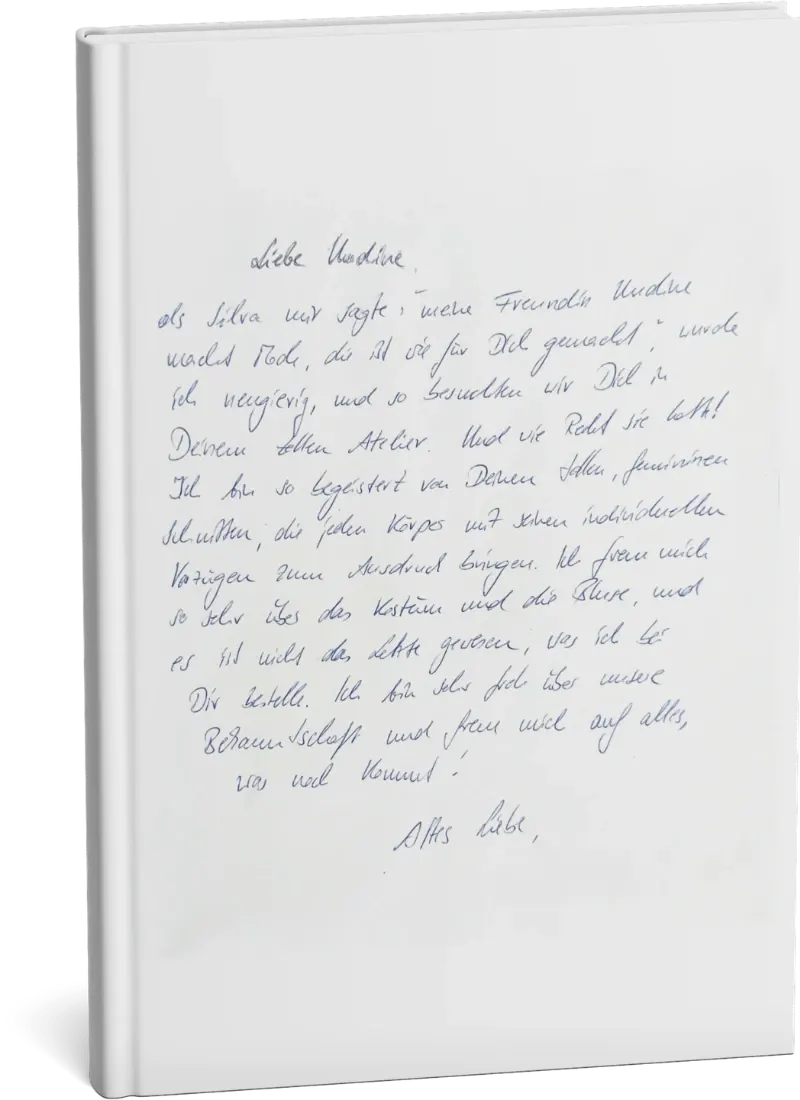 Liebe Undine,
als Silva mir sagte: "meine Freundin Undine
macht Mode, die ist wie für Dich gemacht", wurde
ich neugierig, und so besuchten wir Dich in
Deinem tollen Atelier. Und wie Recht sie hatte!
Ich bin so begeistert von Deinen tollen, femininen
Schnitten, die jeden Körper mit seinen individuellen
Vorzügen zum Ausdruck bringen. Ich freue mich
so sehr über das Kostüm und die Bluse, und
es ist nicht das Letzte gewesen, was ich bei
Dir bestelle. Ich bin sehr froh über unsere
Bekanntschaft und freue mich auf alles,
was noch kommt!
Alles Liebe,